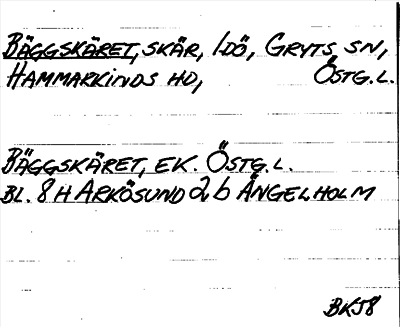 BÄGGSKÄRET, SKÄR, IDÖ, GRYTS SN,
HAMMARKINDS HD, ÖSTG.L.
BÄGGSKÄRET, EK. ÖSTG.L.
BL. 8 H ARKÖSUND 2 b ÄNGELHOLM
BKJ8